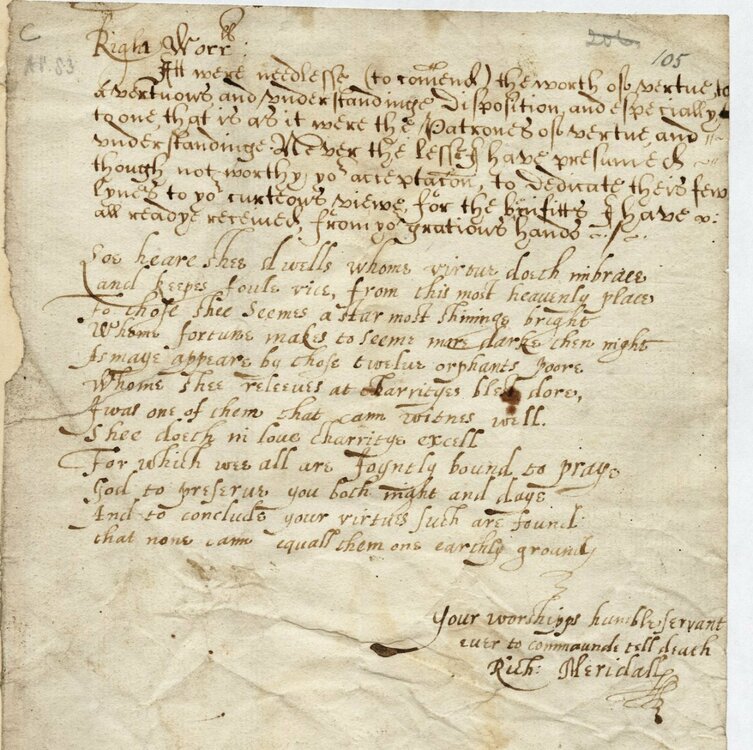 C
206
105
Right Worrll:
Itt were needlesse (to comend) the worth of vertue, to
a vertuous and understandinge disposition, and especially,
to one that is as it were the Patrones of vertue, and
understandinge. Never the lesse I have presumed
though not worthy yor acceptacon, to dedicate theis few
lynes to yor curteous viewe, for the binifitts I have
all readye received, from yor gratious hands
Loe heare shee dwells whome virtue doeth imbrace
and keepes foule vice, from this most heavenly place
to those shee seemes a star most shininge bright
Whome fortune makes to seeme more darke then night
As maye appeare by those twelve orphants poore
Whome shee releeves at charrityes blest dore,
I was one of them that cann witnes well.
Shee doeth in love charritye excell
For which wee all are Joyntly bound to praye
God to preserve you both night and daye
And to conclude your virtues such are found
that none cann equall them one earthly ground
Your worshipps humble servant
ever to commaunde tell death
Rich: Meridall